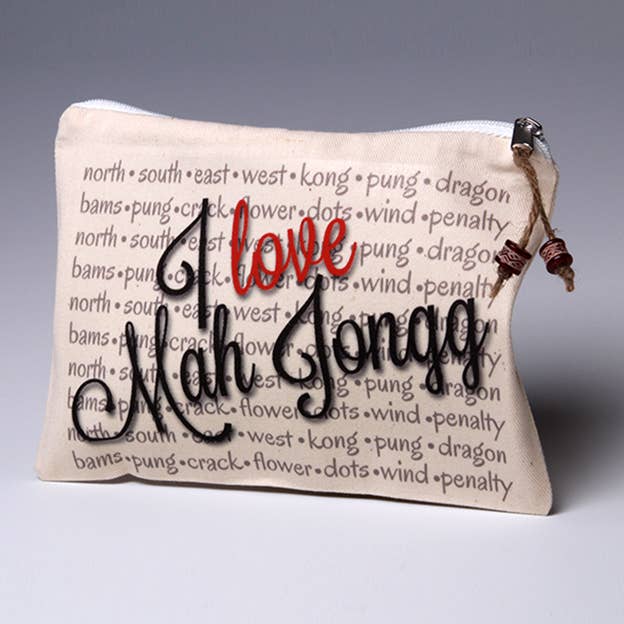 north • south • east • west • kong • pung • dragon
bams • pung • crack • flower • dots • wind • penalty
north • south • east • west • kong • pung • dragon
I love
bams • pung • crack • flower • dots • wind • penalty
north • south • east • west • kong • pung • dragon
bams • pung • crack • flower • dots • wind • penalty
Mah Jongg
north • south • east • west • kong • pung • dragon
bams • pung • crack • flower • dots • wind • penalty
north • south • east • west • kong • pung • dragon
bams • pung • crack • flower • dots • wind • penalty